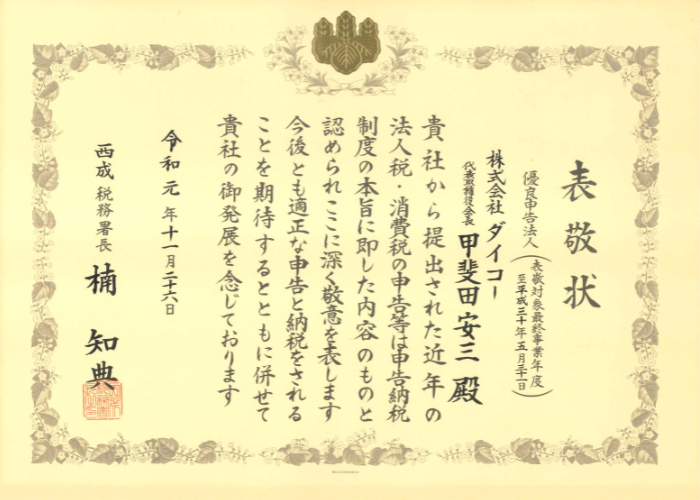 表敬状
優良申告法人(表敬対象最終事業年度 至平成三十年五月三十一日)
株式会社 ダイコー
代表取締役会長 甲斐田安三 殿
貴社から提出された近年の
法人税・消費税の申告等は申告納税
制度の本旨に即した内容のものと
認められここに深く敬意を表します
今後とも適正な申告と納税をされる
ことを期待するとともに併せて
貴社の御発展を念じております
令和元年十一月二十六日
西成税務署長 楠 知典